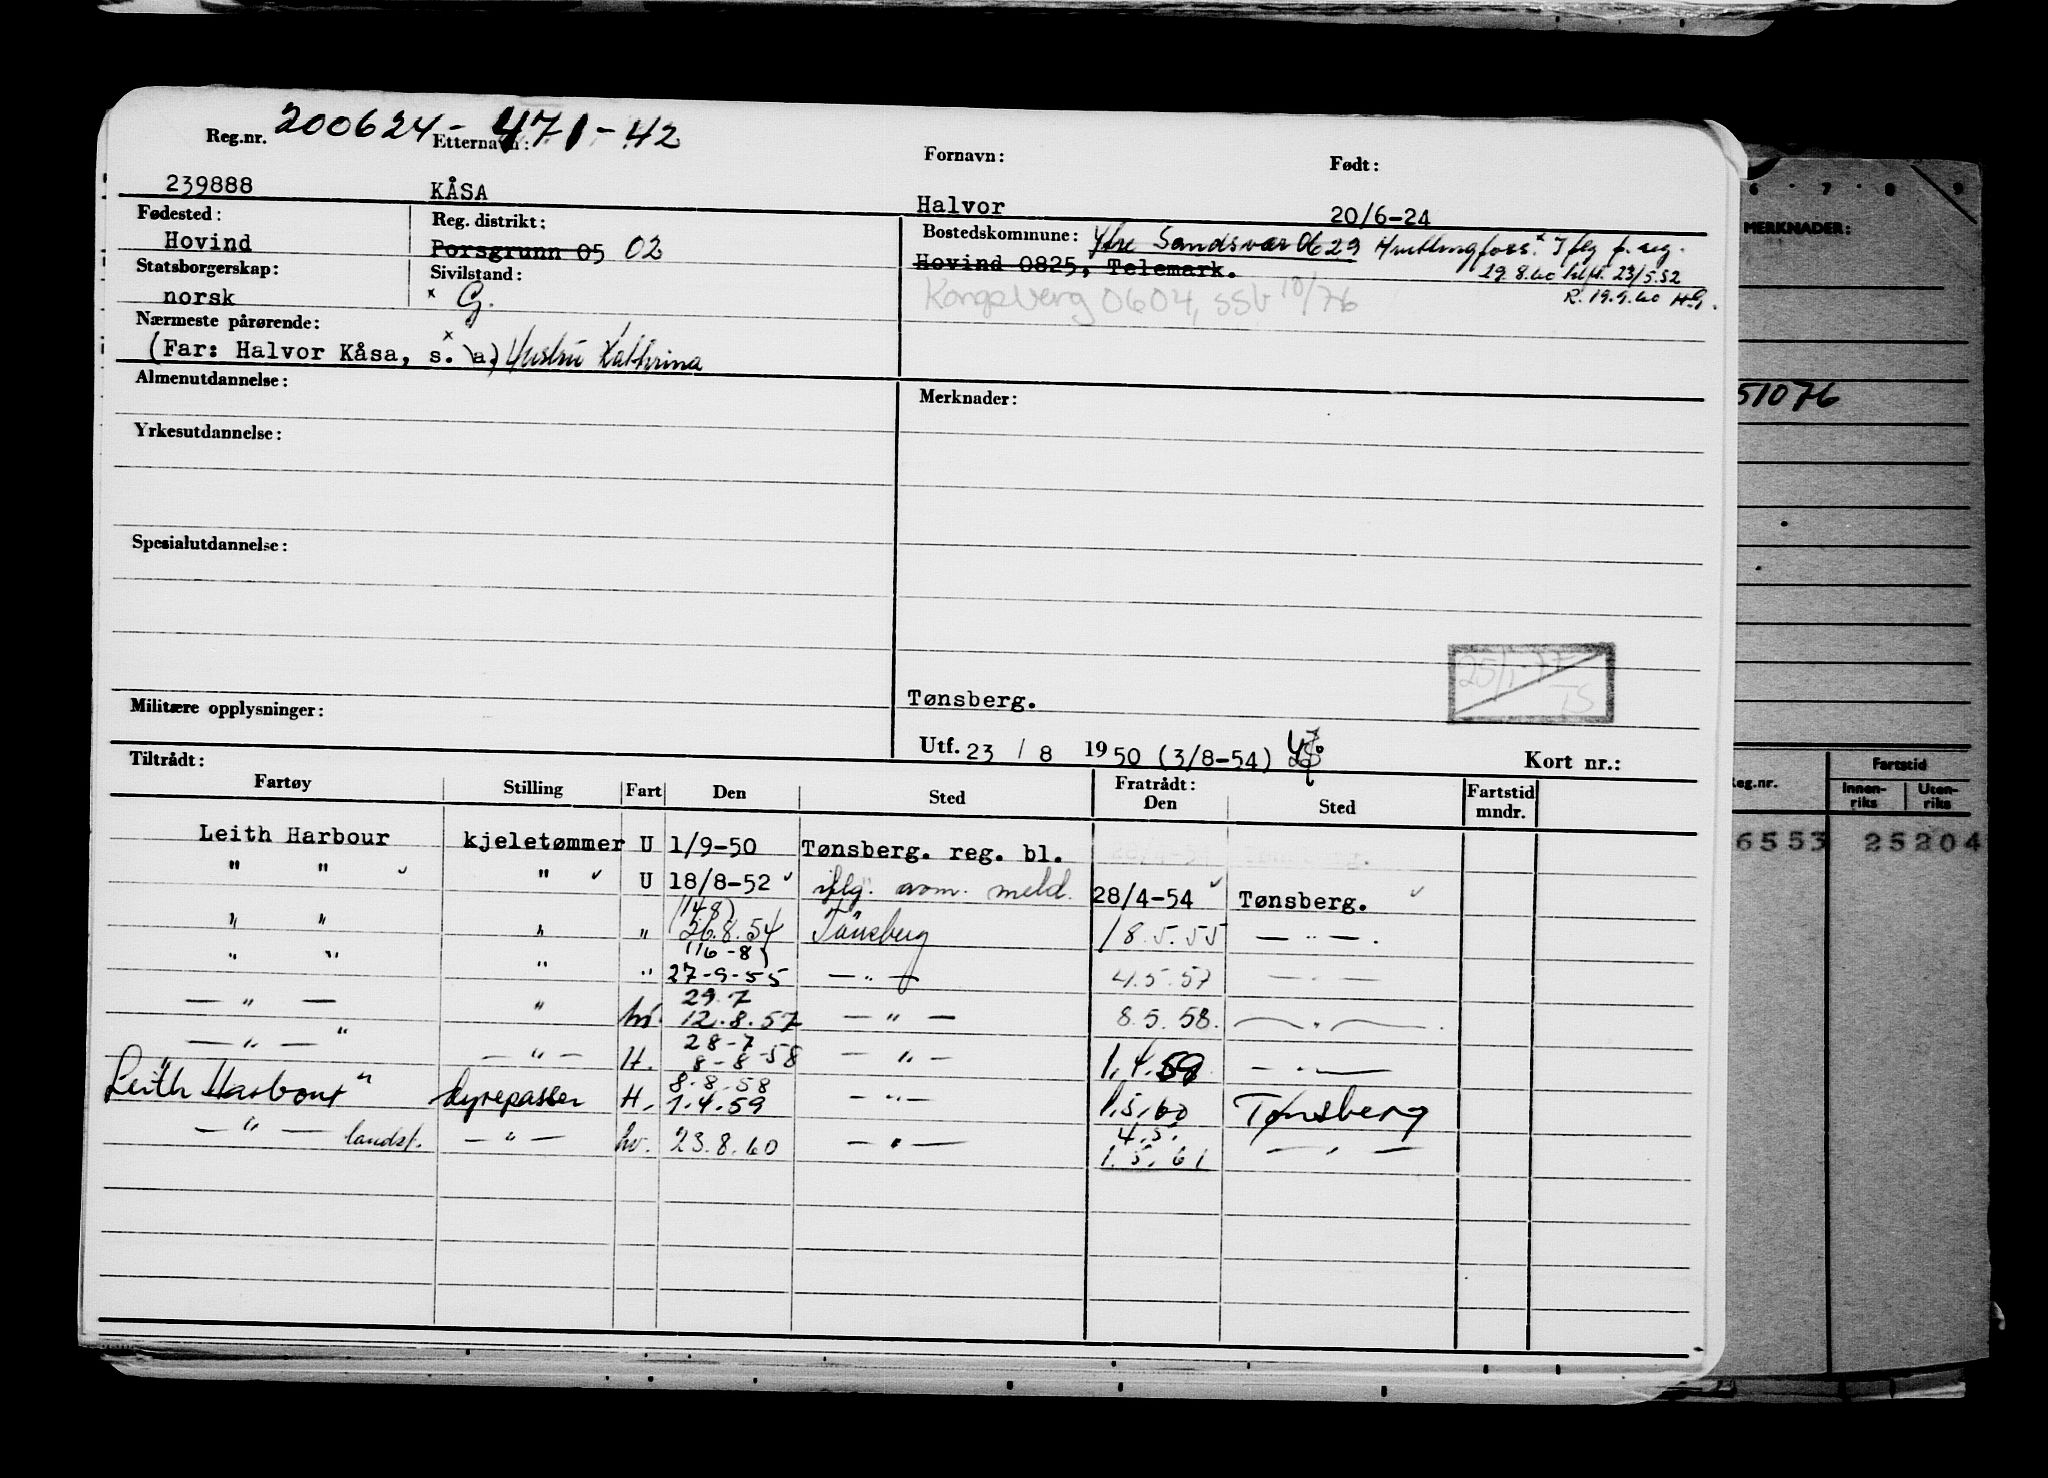 Reg.nr. 200624-471-42 Etternavn: Fornavn: Født:
239888 KÅSA Halvor 20/6-24
Fødested: Reg. distrikt: Bostedskommune: Ytre Sandsvær 0629 Hvittingfoss. Iflg f. seg.
Hovind Porsgrunn 05 02 Hovind 0825, Telemark. 19.8.60 23/5.52
Statsborgerskap: Sivilstand: Kongsberg 0604, SSb 10/76 R. 19.9.60 H.G.
norsk x G.
Nærmeste pårørende:
(Far: Halvor Kåsa, s. a) Hustru Kathrina
Almenutdannelse: Merknader:
Yrkesutdannelse:
Spesialutdannelse:
25/1-77 TS
Tønsberg.
Militære opplysninger:
Utf. 23 / 8 1950 (3/8-54) Kort nr.:
Tiltrådt: Fratrådt:
Fartøy Stilling Fart Den Sted Den Sted Fartstid mndr.
Leith Harbour kjeletømmer U 1/9-50 Tønsberg. reg. bl.
" " " U 18/8-52 iflg. avm. meld. 28/4-54 Tønsberg.
(14-8)
" " " " 26.8.54 Tønsberg 18.5.55 — " — .
(16-8)
" " " " 27-9-55 — " — 4.5.57 — " —
29.7
— " — " hv. 12.8.57 — " — 8.5.58. — " — .
28-7
— " — " — " — H. 8-8-58 — " — 1.4.59 — " —
8.8.58
"Leith Harbour" dyrepasser H. 1.4.59 — " — 1.5.60 Tønsberg
4.5.
— " — landst. — " — hv. 23.8.60 — " — 1.5.61 — " —
6 · 7 · 8 · 9
MERKNADER:
51076
Reg.nr. Fartstid
Innenriks Utenriks
6553 25204